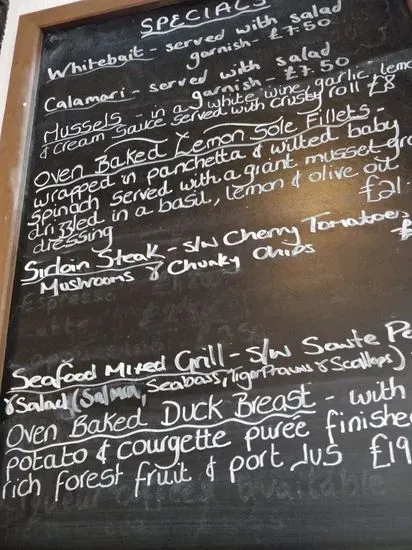 SPECIALS
Whitebait - served with salad
garnish - £7.50
Calamari - served with salad
garnish - £7.50
Mussels - in a white wine, garlic, lemo
& cream sauce served with crusty roll £8
Oven Baked Lemon Sole Fillets -
wrapped in panchetta & wilted baby
spinach served with a giant musset
drizzled in a basil, lemon & olive oil
dressing £21.
Sirloin Steak - s/w Cherry Tomatoes,
Mushrooms & Chunky Chips £
Seafood Mixed Grill - s/w Saute Po
& Salad (Salmon, Seabass, Tiger Prawns & Scallops)
Oven Baked Duck Breast - with
potato & courgette puree finished
rich forest fruit & port Jus £19